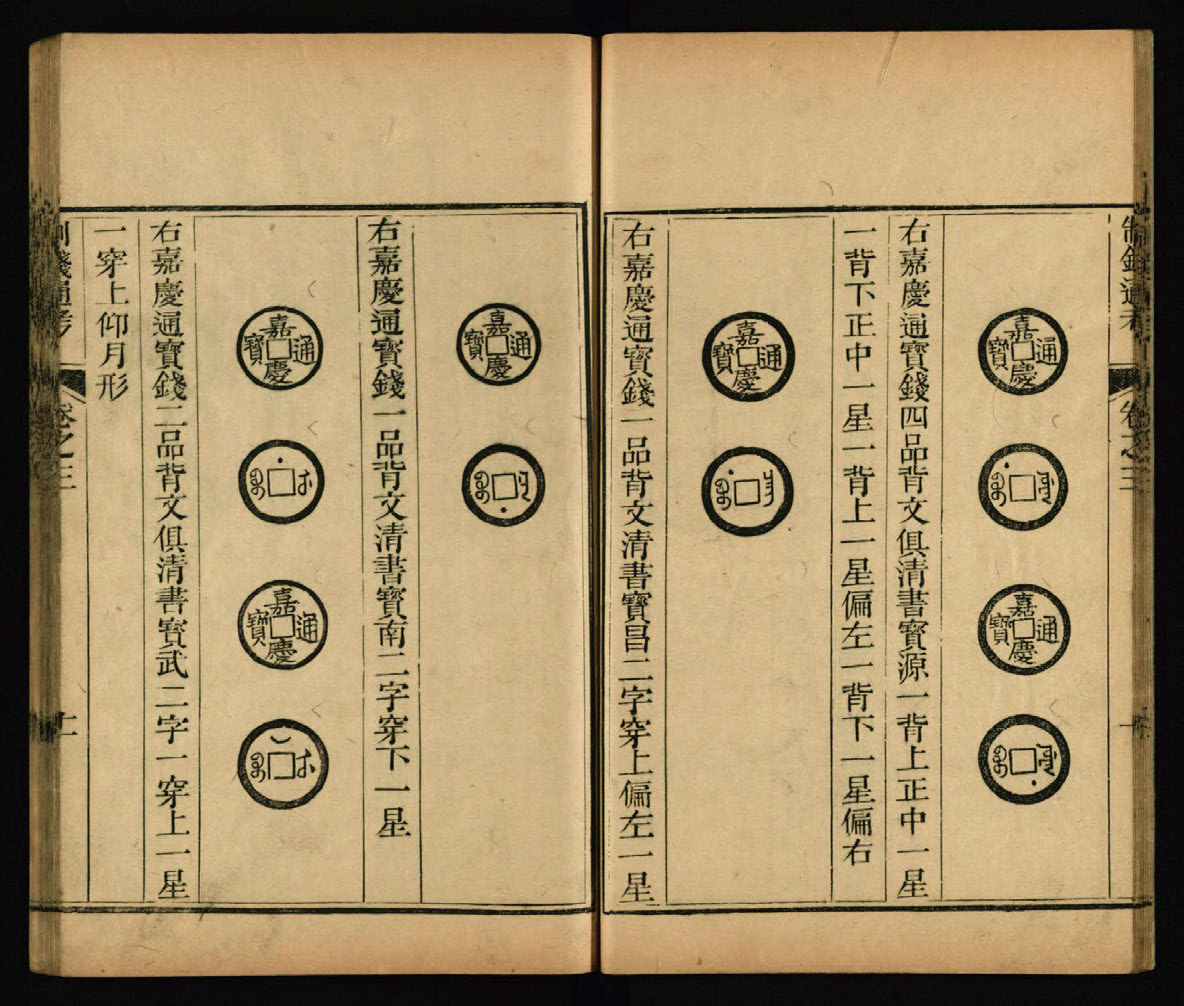 制錢通考
卷之三
嘉慶通寶
嘉慶通寶
右嘉慶通寶錢四品背文俱清書寶源一背上正中一星
一背下正中一星一背上一星偏左一背下一星偏右
嘉慶通寶
右嘉慶通寶錢一品背文清書寶昌二字穿上偏左一星
嘉慶通寶
右嘉慶通寶錢一品背文清書寶南二字穿下一星
嘉慶通寶
嘉慶通寶
右嘉慶通寶錢二品背文俱清書寶武二字一穿上一星
一穿上仰月形
制錢通考
卷之三